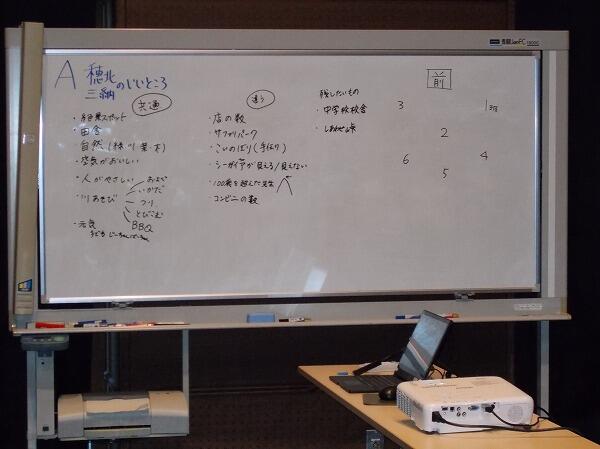 A 穂北 三納 のいいところ
共通
・絶景スポット
・田舎
・自然(緑 川 葉っぱ)
・空気がおいしい
・人がやさしい
・川あそび
およぐ
いかだ
つり
とびこむ
BBQ
・元気
子ども じーちゃんばーちゃん
違う
・店の数
・サファリパーク
・こいのぼり(手作り)
・シーガイアが見える/見えない
・100歳を超えた先生
・コンビニの数
残したいもの
・中学校校舎
・しあわせ峠
前
3
1班
2
6
4
5